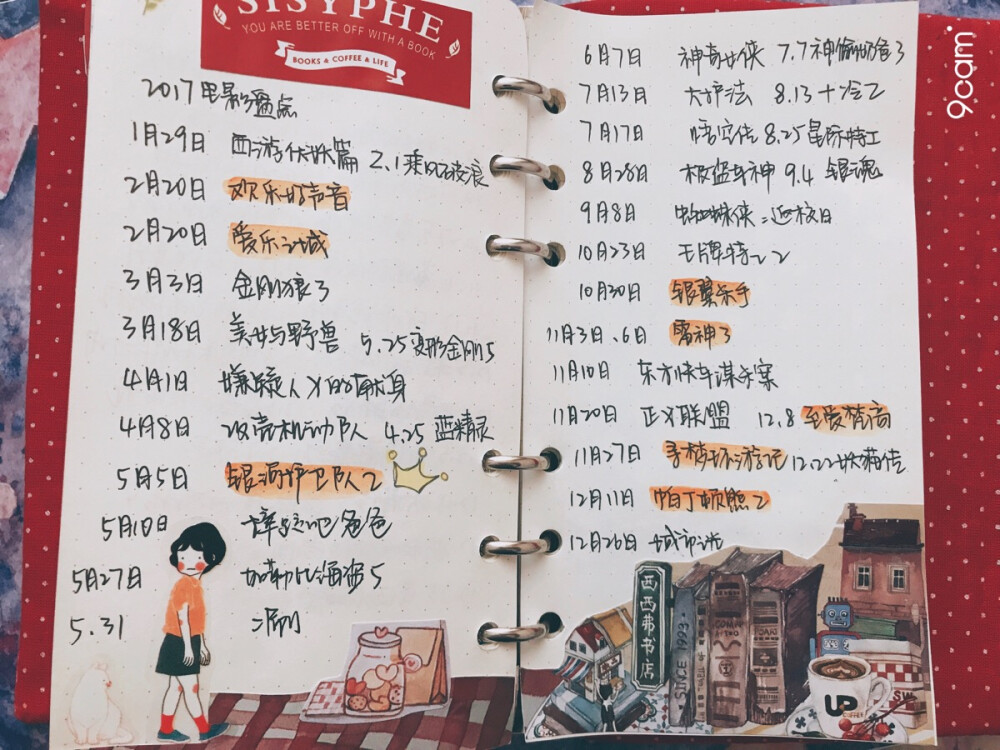 SISYPHE
YOU ARE BETTER OFF WITH A BOOK
BOOKS & COFFEE & LIFE
2017电影盘点
1月29日 西游伏妖篇 2.1乘风破浪
2月20日 欢乐好声音
2月20日 爱乐之城
3月3日 金刚狼3
3月18日 美女与野兽 5.25变形金刚5
4月1日 嫌疑人X的献身
4月8日 攻壳机动队 4.25 蓝精灵
5月5日 银河护卫队2
5月10日 摔跤吧爸爸
5月27日 加勒比海盗5
5.31 二刷
6月7日 神奇女侠 7.7神偷奶爸3
7月13日 大护法 8.13
7月17日 悟空传 8.25星际特工
8月28日 极盗车神 9.4 银魂
9月8日 蜘蛛侠:返校日
10月23日 王牌特工2
10月30日 银翼杀手
11月3日.6日 雷神3
11月10日 东方快车谋杀案
11月20日 正义联盟 12.8 至爱梵高
11月27日 寻梦环游记 12.22妖猫传
12月11日 帕丁顿熊2
12月26日
西西弗书店
SINCE 1993
UP
COFFEE
9cam